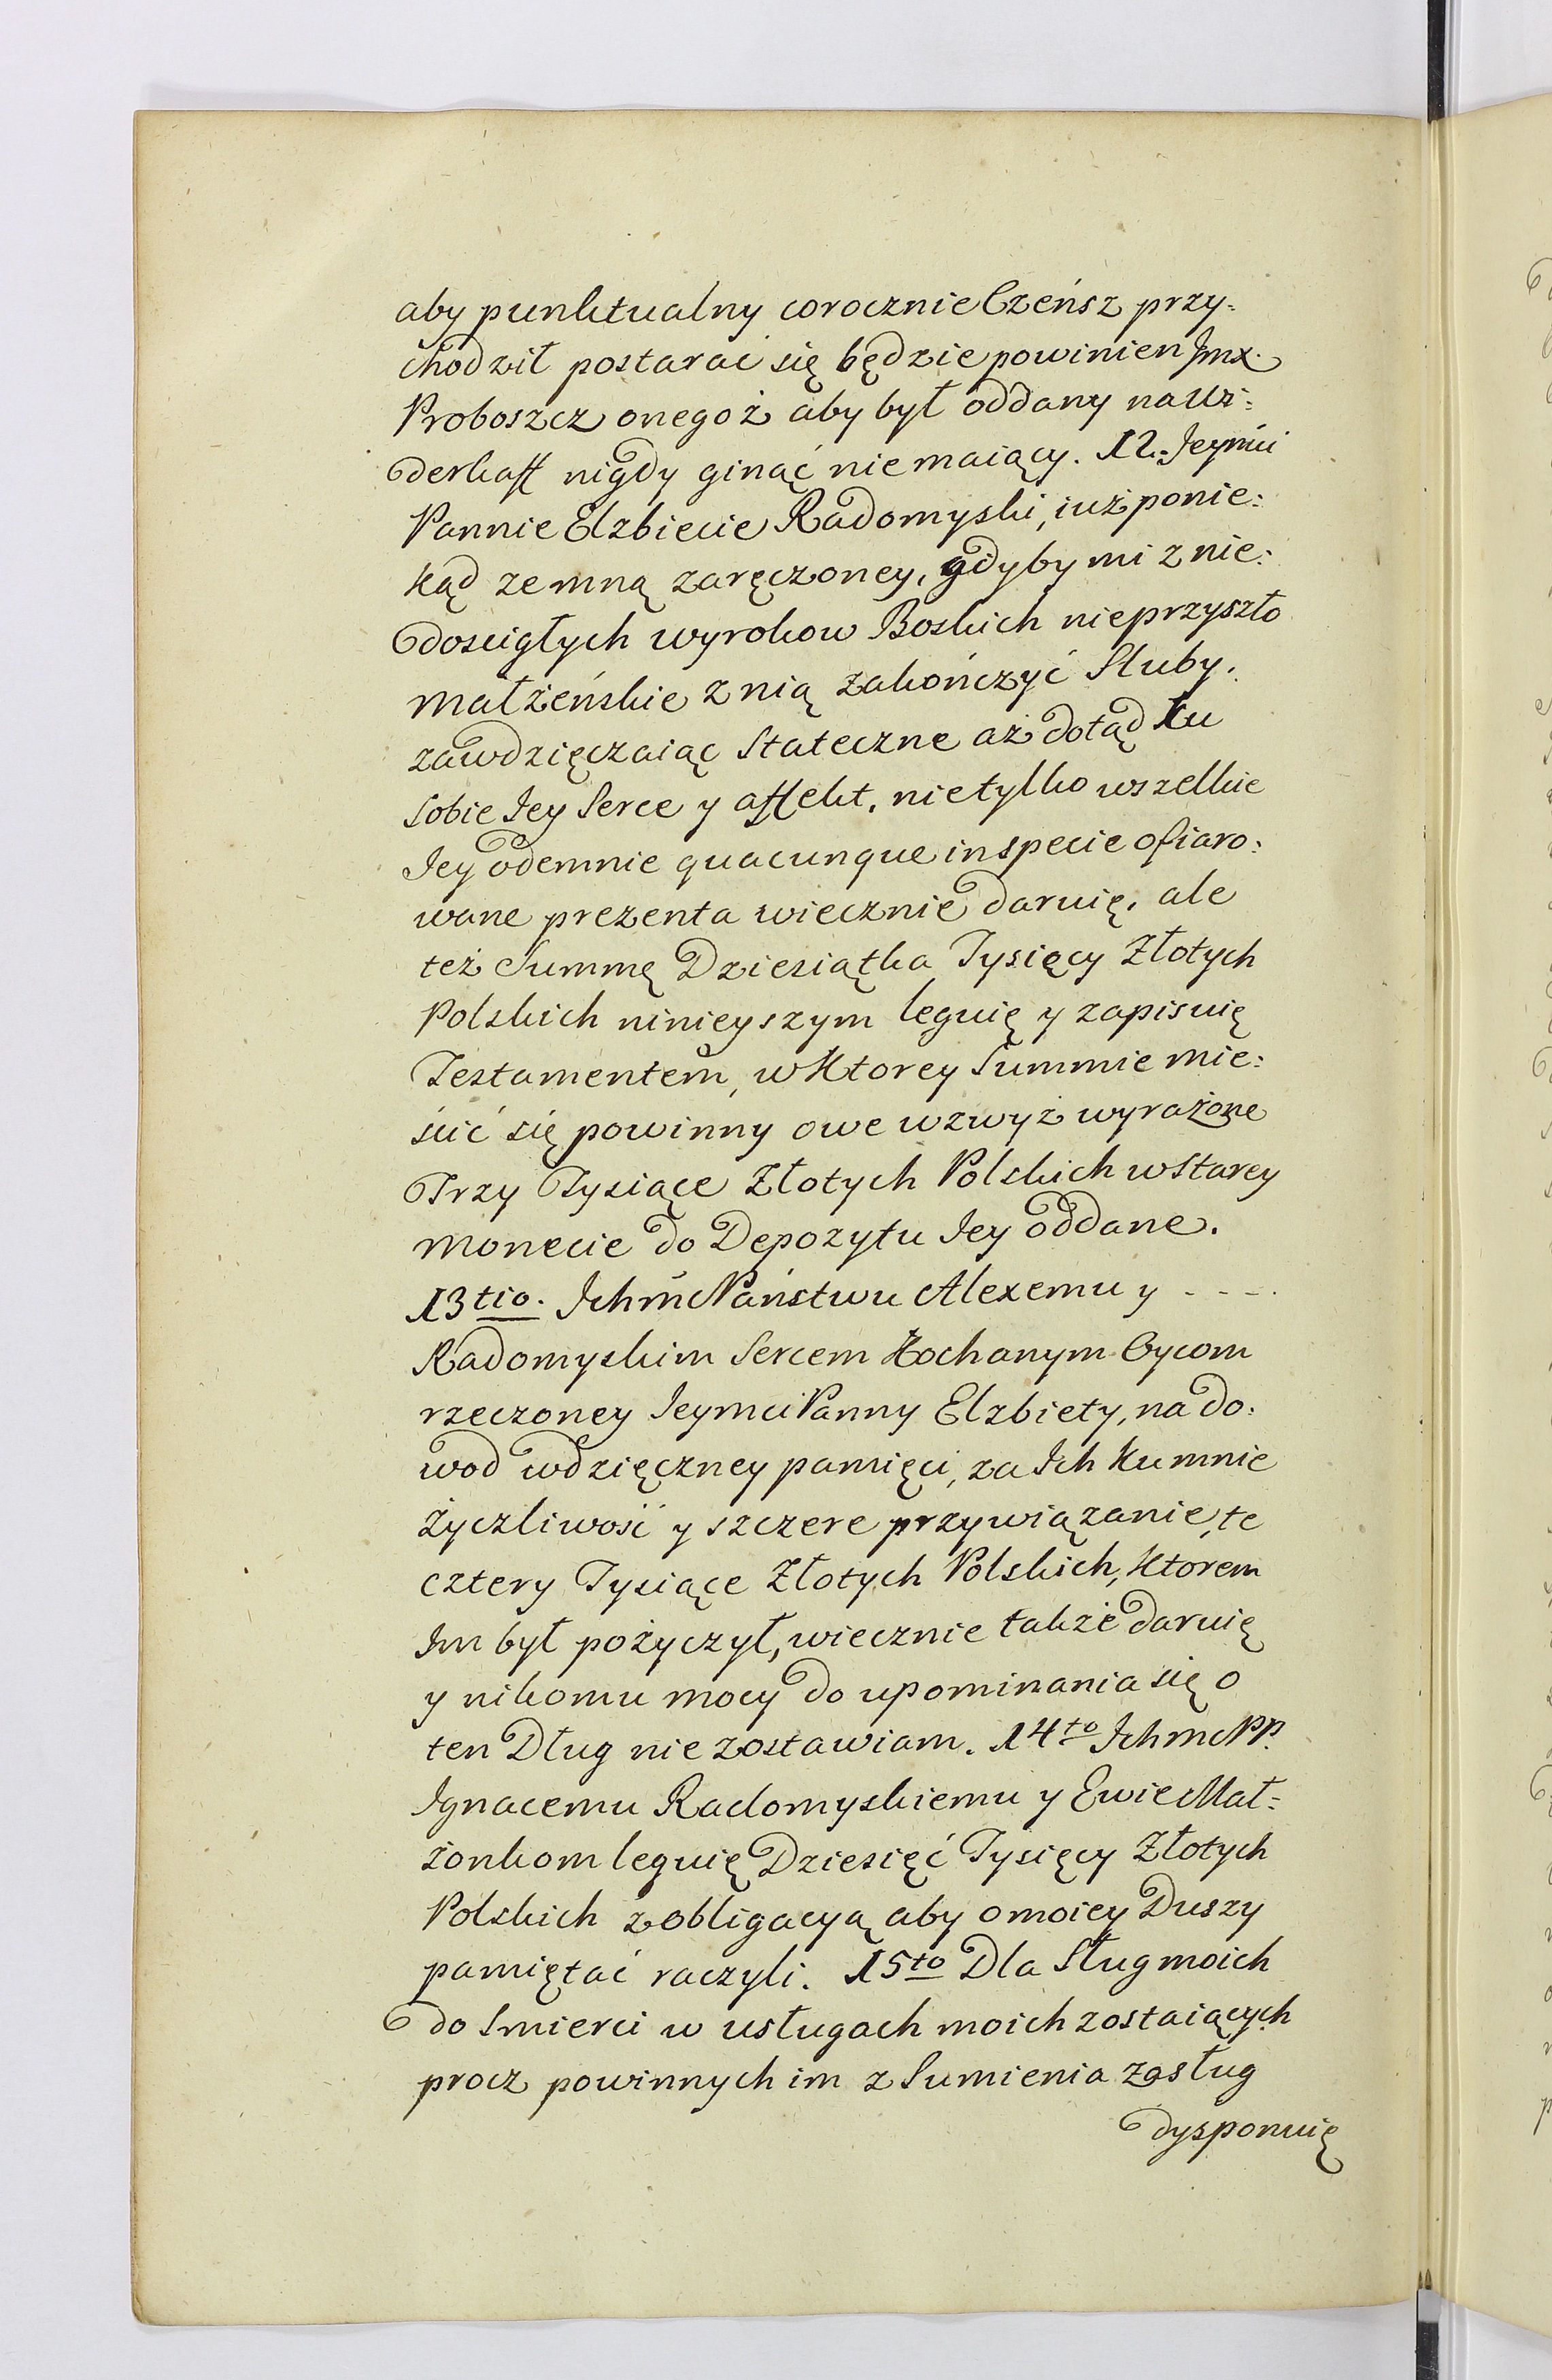 aby punktualny corocznie Czeńsz przy:
chodził postarać się będzie powinien Jmx.
Proboszcz onegoż aby był oddany na Wi:
derkaff nigdy ginąć nie maiący. 12. Jeymći
Pannie Elzbiecie Radomyski, iuż ponie:
kąd ze mną zaręczoney, gdyby mi z nie:
doscigłych wyrokow Boskich nieprzyszło
małżeńskie z nią zakończyć Sluby,
zawdzięczaiąc Stateczne aż dotąd ku
sobie Jey Serce y affekt, nietylko wszelkie
Jey odemnie quacunque in specie ofiaro:
wane prezenta wiecznie daruię, ale
też Summę Dziesiątka Tysięcy Złotych
Polskich ninieyszym leguię y zapisuię
Testamentem, w Ktorey Summie mie:
ścić się powinny owe wzwyż wyrażone
Trzy Tysiące Złotych Polskich w Starey
monecie do Depozytu Jey oddane.
13tio. Jchm Państwu Alexemu y - - -.
Radomyskim Sercem Kochanym Oycom
rzeczoney Jeymci Panny Elzbiety, na do:
wod wdzięczney pamięci, za Jch ku mnie
życzliwość y szczere przywiązanie, te
cztery Tysiące Złotych Polskich, Ktorem
Jm był pożyczył, wiecznie także daruię
y nikomu mocy do upominania się o
ten Dług nie zostawiam. 14to Jchmc PP.
Ignacemu Radomyskiemu y Ewie Mał:
żonkom leguię Dziesięć Tysięcy Złotych
Polskich z obligacyą aby o moiey Duszy
pamiętać raczyli. 15to Dla Sług moich
do Smierci w usługach moich zostaiących
procz powinnych im z Sumienia zasług
dysponuię